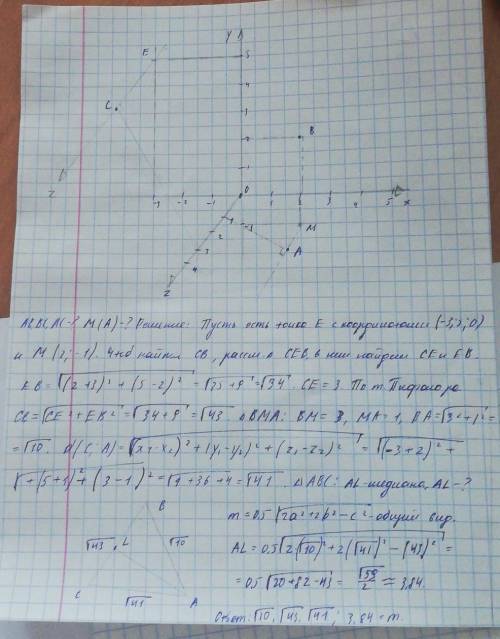 y
E 5
4
C
3
2 B
1
Z
-3 -2 -1 0 1 2 3 4 5 x
1
2 -1 M
3 A
4
Z
AB, BC, AC-? M(A)-? Решение: Пусть есть точка E с координатами (-3;5;0)
и M(2;-1). Чтоб найти CB, рассм. Δ CEB, в нём найдём CE и EB.
EB = √(2+3)² + (5-2)² = √25+9 = √34. CE = 3. По т. Пифагора
CB = √CE² + EB² = √34+9 = √43. ΔBMA: BM = 3, MA = 1, BA = √3²+1² =
= √10. d(C,A) = √(x₁-x₂)² + (y₁-y₂)² + (z₁-z₂)² = √(-3+2)² +
√+(5+1)² + (3-1)² = √1+36+4 = √41. ΔABC: AL-медиана, AL-?
B
m = 0,5√2a²+2b²-c² - общий вид.
√43 L √10
AL = 0,5√2(√10)²+2(√41)²-(√43)² =
= 0,5√20+82-43 = √59/2 ≈ 3,84.
C √41 A
Ответ: √10, √43, √41; 3,84 = m.